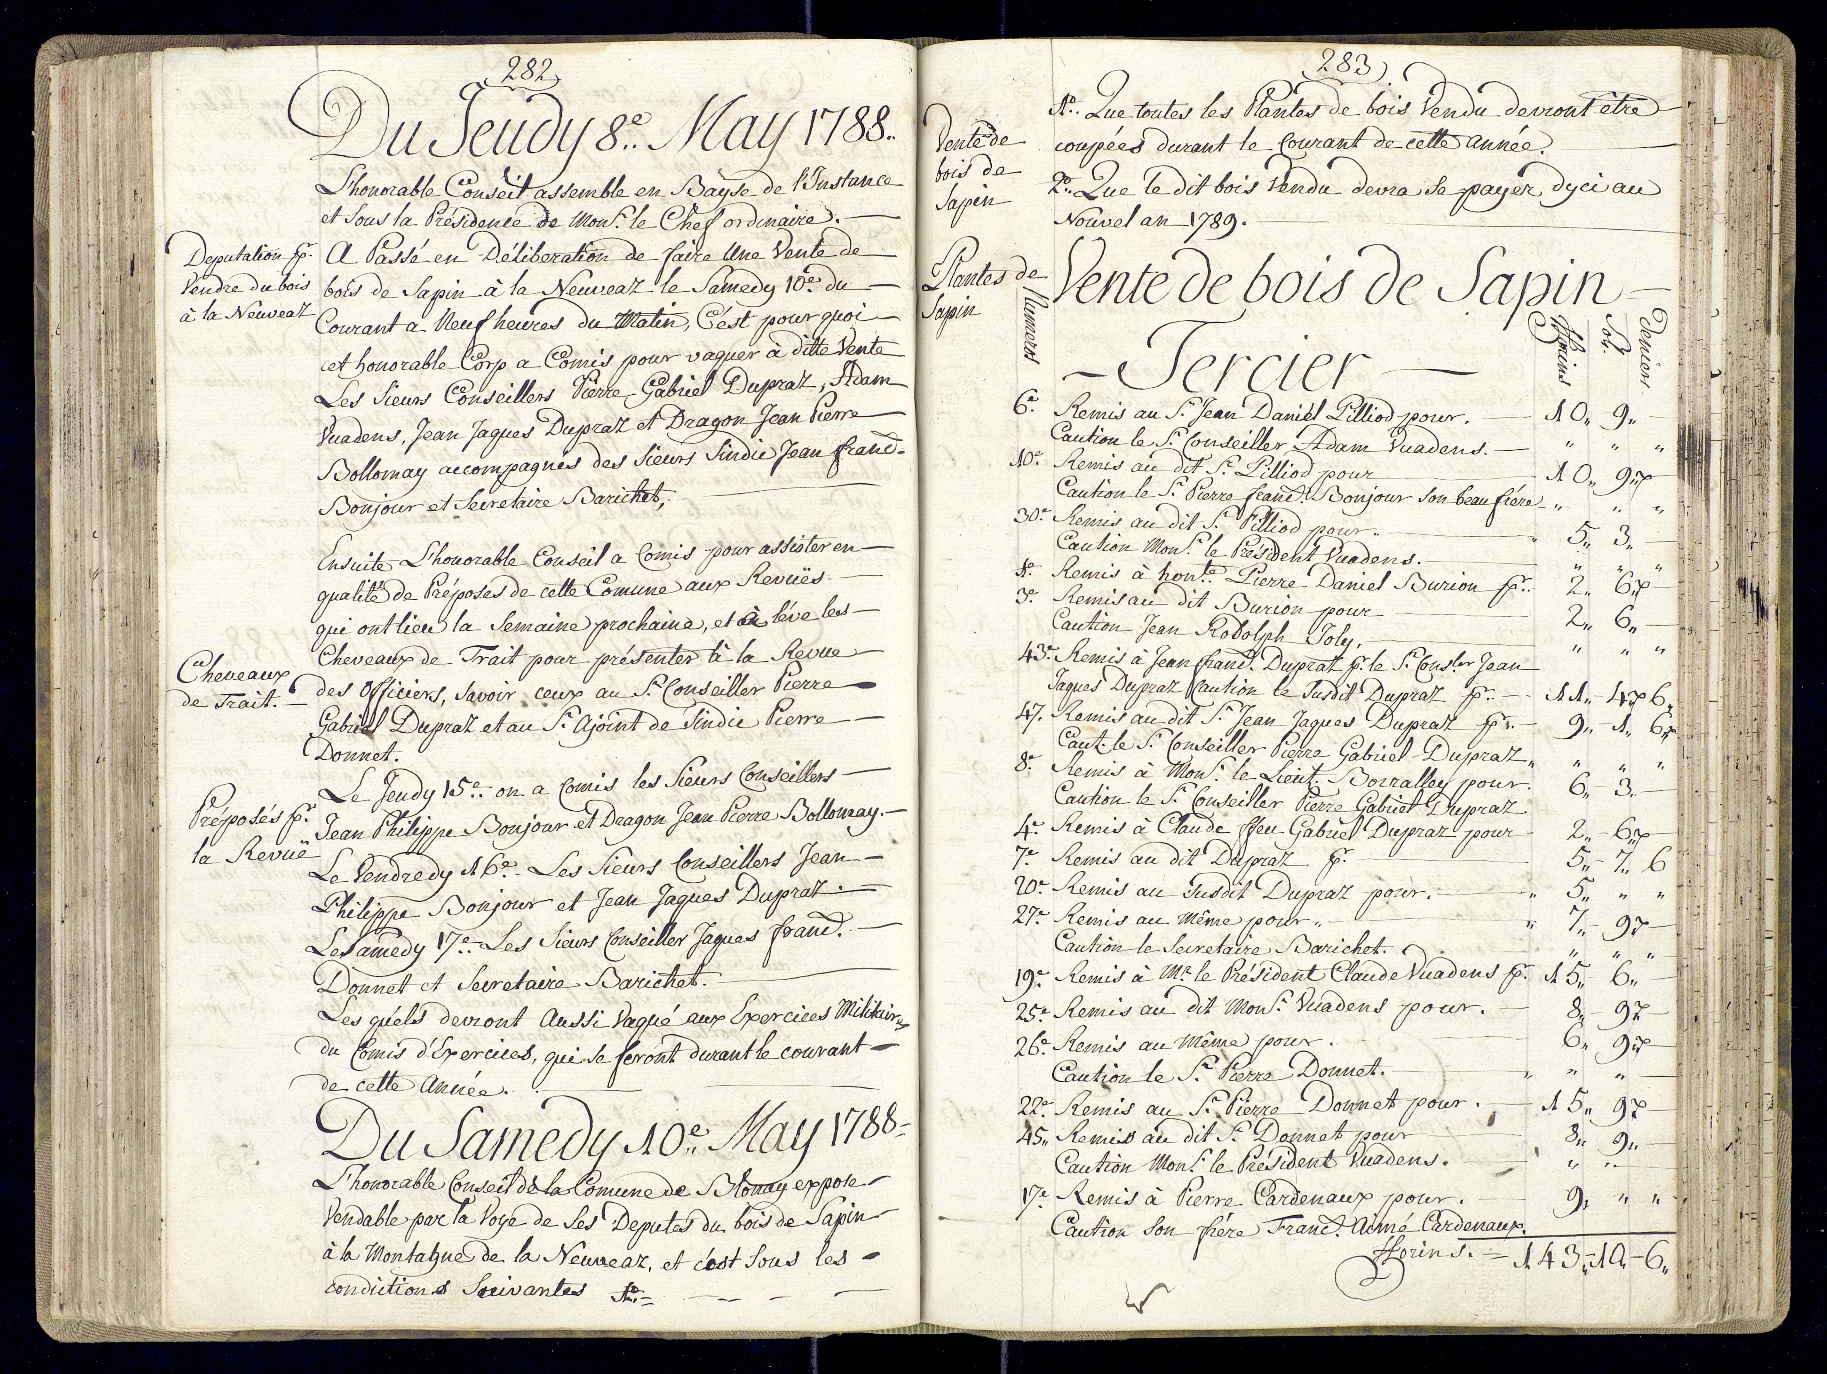 282
Du Jeudy 8e.. May 1788..
L'honorable Conseil assemble en Bayse de l'Instance
et sous la Présidence de Monsr. le Chef ordinaire. —
Deputation pr.
Vendre du bois
à la Neuveaz
A Passé en Déliberation de faire Une Vente de
bois de Sapin à la Neuveaz le Samedy 10e. du —
Courant a Neuf heures du Matin, C'ést pourquoi
cet honorable Corp a Comis pour vaguer à ditte Vente
Les Sieurs Conseillers Pierre Gabriel Dupraz, Adam
Vuadens, Jean Jaques Dupraz et Dragon Jean Pierre
Bollomay accompagnes des Sieurs Sindic Jean francs.
Bonjour et Secretaire Barichet; —
Ensuite L'honorable Conseil a Comis pour assister en —
qualité de Préposes de cette Comune aux Revuës —
qui ont lieu la Semaine prochaine, et à léve les —
Cheveaux
de Trait. —
Cheveaux de Trait pour présenter à la Revue —
des Officiers, savoir ceux au Sr. Conseiller Pierre —
Gabriel Dupraz et au Sr. Ajoint de Sindic Pierre —
Donnet.
Préposés pr.
la Revuë
Le Jeudy 15e.. on a Comis les Sieurs Conseillers —
Jean Philippe Bonjour et Dragon Jean Pierre Bollomay. —
Le Vendredy 16e. Les Sieurs Conseillers Jean —
Philippe Bonjour et Jean Jaques Dupraz. —
Le Samedy 17e. Les Sieurs Conseiller Jaques francs. —
Donnet et Secretaire Barichet. —
Les quels devront Aussi Vaqué aux Exercices Militaires
du Comis d'Exercices, qui se feront durant le courant —
de cette Année. —
Du Samedy 10e.. May 1788=
L'honorable Conseil de la Comune de Blonay expose —
Vendable par la Voye de Ses Deputes du bois de Sapin —
à la Montagne de la Neuveaz, et c'est Sous les —
condictions Suivantes 1o.=
283
Vente de
bois de
Sapin
1o.. Que toutes les Plantes de bois Vendu devront être —
coupées durant le Courant de cette Année. —
2o.. Que le dit bois Vendu devra Se payer dyci au
Nouvel an 1789. —
Plantes de
Sapin
Vente de bois de Sapin —
— Tercier —
Numeros
fflorins Sols. Deniers
6e. Remis au Sr. Jean Daniel Pilliod pour. 10„ 9„
Caution le Sr. Conseiller Adam Vuadens. — „ „ „
10e. Remis au dit Sr. Pilliod pour 10„ 9„
Caution le Sr. Pierre francs. Bonjour Son beau frére „ „ „
30e. Remis au dit Sr. Pilliod pour „ 5„ 3„ —
Caution Monsr. le Président Vuadens. — „ „ „
1e. Remis à honte. Pierre Daniel Burion pr.. 2„ 6„ —
3e. Remis au dit Burion pour 2„ 6„ —
Caution Jean Rodolph Joly, — „ „ „
43e. Remis à Jean francs. Dupraz pr. le Sr. Conser. Jean
Jaques Dupraz Caution le Susdit Dupraz pr.. — 11„ — 4„ 6„
47. Remis au dit Sr. Jean Jaques Dupraz pr.. — 9„ — 1„ 6„
Caut. le Sr. Conseiller Pierre Gabriel Dupraz „ „ „ „
8e. Remis à Monsr. le Lieut. Borralley pour. 6„ — 3 —
Caution le Sr. Conseiller Pierre Gabriel Dupraz
4e. Remis à Claude ffeu Gabriel Dupraz pour 2„ — 6„ —
7e. Remis au dit Dupraz pr. — 5„ — 7„ 6
20e. Remis au Susdit Dupraz pour. — „ 5„ „ „
27e. Remis au Même pour „ — „ 7„ — 9„ —
Caution le Secretaire Barichet. „ „ „
19e. Remis à Mr. le Président Claude Vuadens pr. 15„ — 6„ —
25e. Remis au dit Monsr. Vuadens pour. — 8„ — 9„ —
26e. Remis au Même pour. 6„ 9„ —
Caution le Sr. Pierre Donnet. — „ „ „ —
22e. Remis au Sr. Pierre Donnet pour. — 15„ 9„ —
45„ Remis au dit Sr. Donnet pour 8„ 9„ —
Caution Monsr. le Président Vuadens. — „ „ —
17e. Remis à Pierre Cardenaux pour. — 9„ „ „
Caution Son frére Francs. Aimé Cardenaux.
fflorins. = 143„ — 10„ — 6„